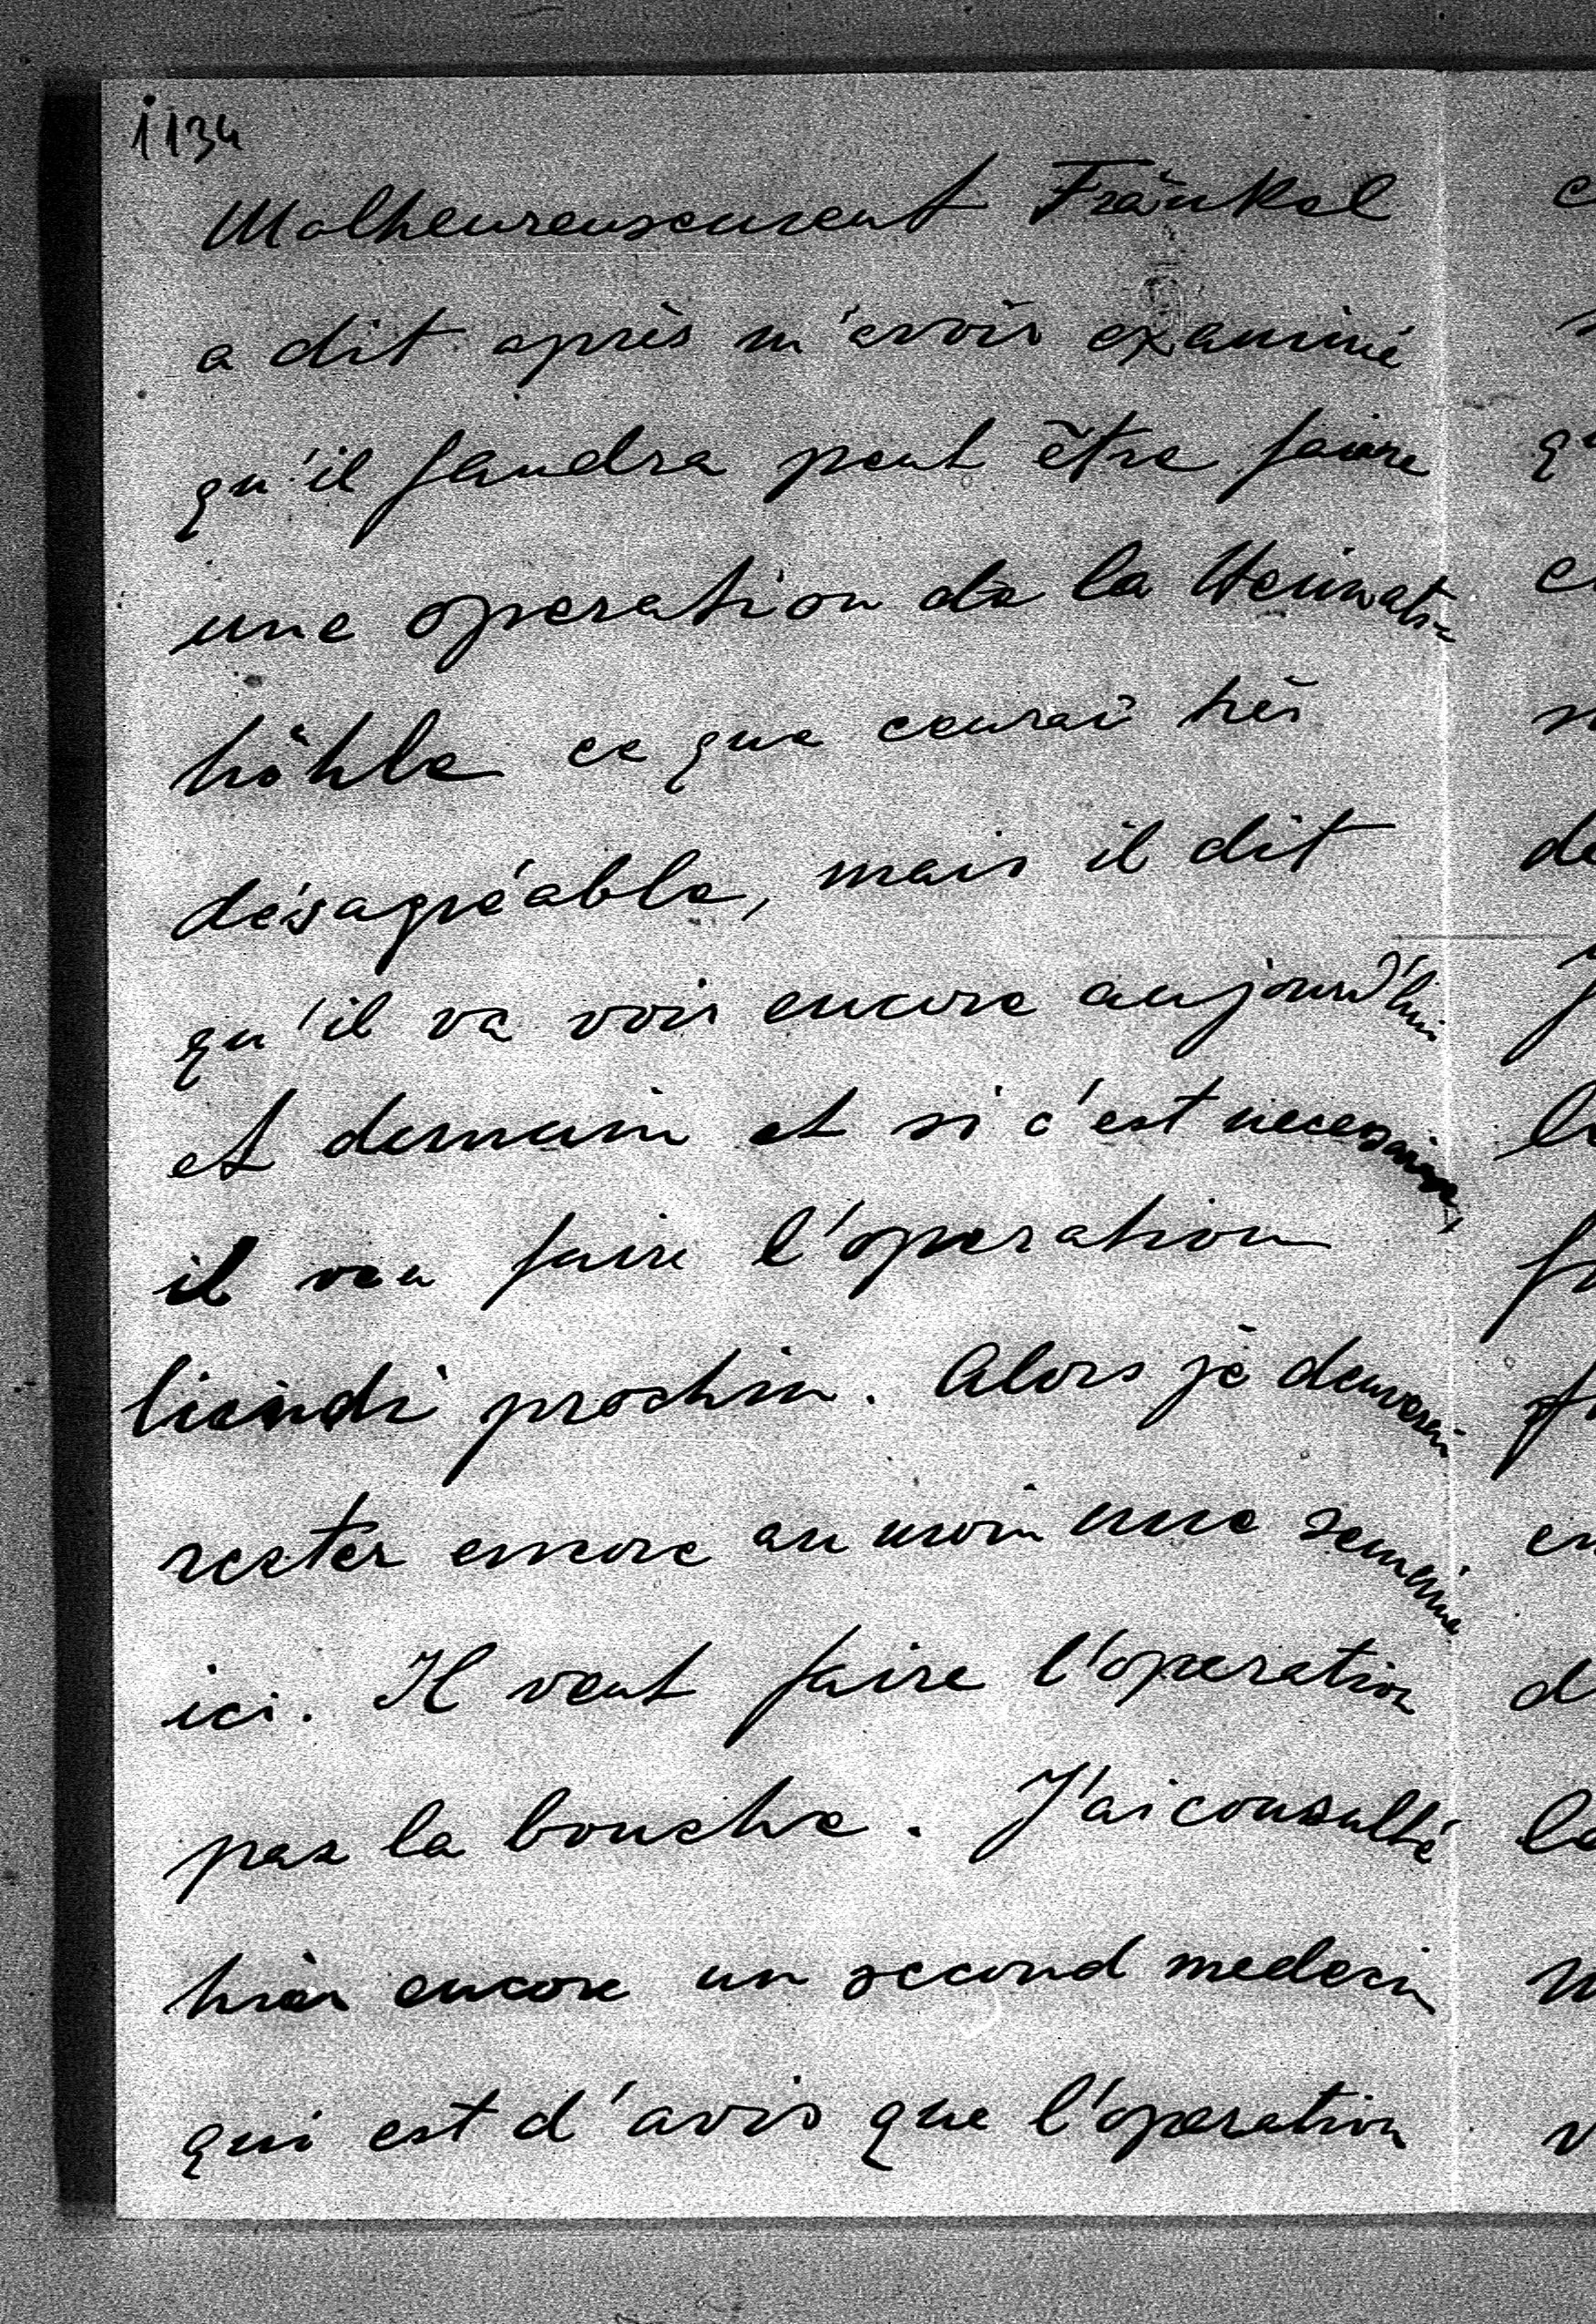 1134
Malheureusement Fränkel
a dit après m'avoir examiné
qu'il faudra peut être faire
une operation de la
höhle ce que très
désagréable, mais il dit
qu'il va voir encore aujourd'hui
et demain et si c'est necessaire,
il faire l'operation
prochin. Alors je
rester encore au moin une semaine
ici. Il veut faire l'operation
par la bouche. J'ai consulté
hier encore un second medecin
qui est d'avis que l'operation